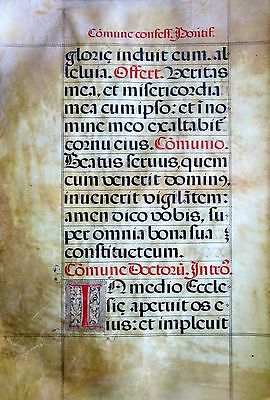 Cõmune confess. Pontif.
glorię induit eum. al
leluia. Offert. Veritas
mea, et misericordia
mea cum ipso: et ĩ no
mine meo exaltabit̃
cornu eius. Cõmunio.
Beatus seruus, quem
cum venerit domin⁹,
inuenerit vigilãtem:
amen dico vobis, su
per omnia bona sua
constituet eum.
Cõmune Doctorũ. Intro.
IN medio Eccle
się aperuit os e
ius: et impleuit